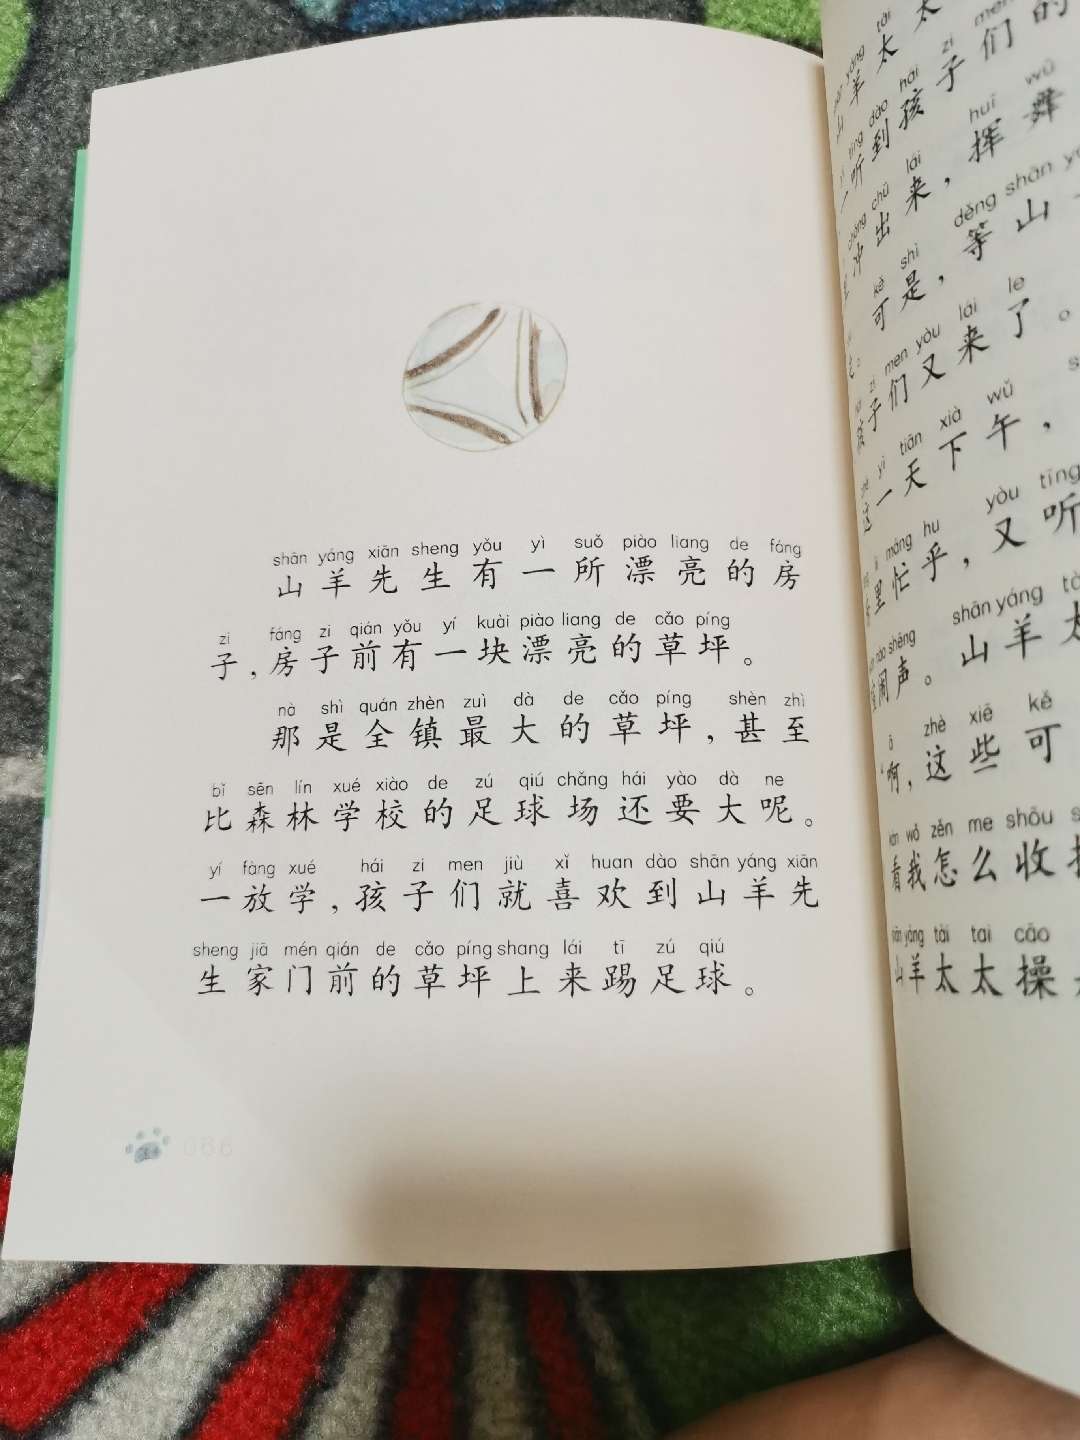 shān yáng xiān sheng yǒu yì suǒ piào liang de fáng
山羊先生有一所漂亮的房
zi fáng zi qián yǒu yí kuài piào liang de cǎo píng
子，房子前有一块漂亮的草坪。
nà shì quán zhèn zuì dà de cǎo píng shèn zhì
那是全镇最大的草坪，甚至
bǐ sēn lín xué xiào de zú qiú chǎng hái yào dà ne
比森林学校的足球场还要大呢。
yí fàng xué hái zi men jiù xǐ huan dào shān yáng xiān
一放学，孩子们就喜欢到山羊先
sheng jiā mén qián de cǎo píng shang lái tī zú qiú
生家门前的草坪上来踢足球。
066
yáng tài
山羊太太
tīng dào hái zi men
一听到孩子们的
chōng chū lái huī wǔ
冲出来，挥舞
kě shì děng shān
可是，等山
zi men yòu lái le
孩子们又来了。
yì tiān xià wǔ
这一天下午，
máng hu yòu tīng
里忙乎，又听
nào shēng shān yáng
闹声。山羊太
zhè xiē kě
“啊，这些可
wǒ zěn me shōu
看我怎么收
yáng tài tai cāo
山羊太太操